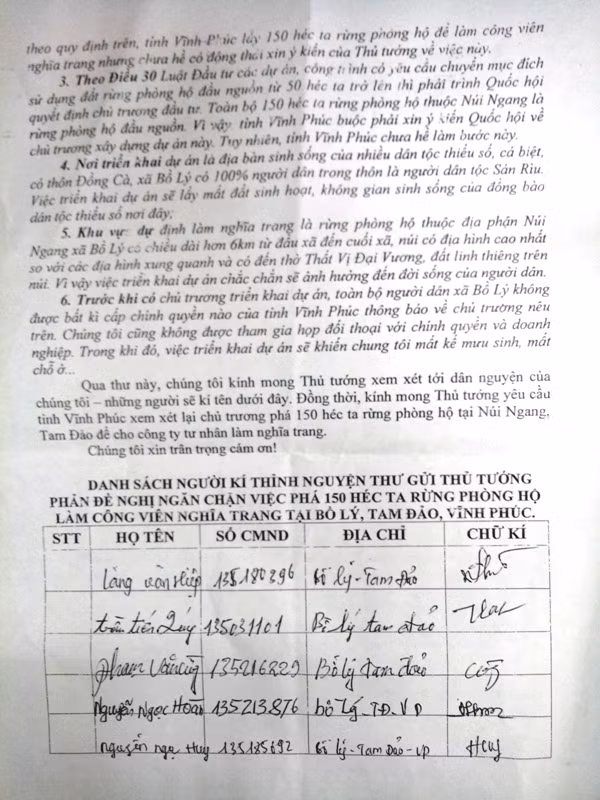 theo quy định trên, tỉnh Vĩnh Phúc lấy 150 héc ta rừng phòng hộ để làm công viên
nghĩa trang nhưng chưa hề có động thái xin ý kiến của Thủ tướng về việc này.
3. Theo Điều 30 Luật Đầu tư các dự án, công trình có yêu cầu chuyển mục đích
sử dụng đất rừng phòng hộ đầu nguồn từ 50 héc ta trở lên thì phải trình Quốc hội
quyết định chủ trương đầu tư. Toàn bộ 150 héc ta rừng phòng hộ thuộc Núi Ngang là
rừng phòng hộ đầu nguồn. Vì vậy tỉnh Vĩnh Phúc buộc phải xin ý kiến Quốc hội về
chủ trương xây dựng dự án này. Tuy nhiên, tỉnh Vĩnh Phúc chưa hề làm bước này.
4. Nơi triển khai dự án là địa bàn sinh sống của nhiều dân tộc thiểu số, cá biệt,
có thôn Đồng Cà, xã Bồ Lý có 100% người dân trong thôn là người dân tộc Sán Rìu.
Việc triển khai dự án sẽ lấy mất đất sinh hoạt, không gian sinh sống của đồng bào
dân tộc thiểu số nơi đây;
5. Khu vực dự định làm nghĩa trang là rừng phòng hộ thuộc địa phận Núi
Ngang xã Bồ Lý có chiều dài hơn 6km từ đầu xã đến cuối xã, núi có địa hình cao nhất
so với các địa hình xung quanh và có đền thờ Thất Vị Đại Vương, đất linh thiêng trên
núi. Vì vậy việc triển khai dự án chắc chắn sẽ ảnh hưởng đến đời sống của người dân.
6. Trước khi có chủ trương triển khai dự án, toàn bộ người dân xã Bồ Lý không
được bất kì cấp chính quyền nào của tỉnh Vĩnh Phúc thông báo về chủ trương nêu
trên. Chúng tôi cũng không được tham gia họp đối thoại với chính quyền và doanh
nghiệp. Trong khi đó, việc triển khai dự án sẽ khiến chung tôi mất kế mưu sinh, mất
chỗ ở...
Qua thư này, chúng tôi kính mong Thủ tướng xem xét tới dân nguyện của
chúng tôi – những người sẽ kí tên dưới đây. Đồng thời, kính mong Thủ tướng yêu cầu
tỉnh Vĩnh Phúc xem xét lại chủ trương phá 150 héc ta rừng phòng hộ tại Núi Ngang,
Tam Đảo để cho công ty tư nhân làm nghĩa trang.
Chúng tôi xin trân trọng cám ơn!
DANH SÁCH NGƯỜI KÍ THỈNH NGUYỆN THƯ GỬI THỦ TƯỚNG
PHẢN ĐỀ NGHỊ NGĂN CHẶN VIỆC PHÁ 150 HÉC TA RỪNG PHÒNG HỘ
LÀM CÔNG VIÊN NGHĨA TRANG TẠI BỒ LÝ, TAM ĐẢO, VĨNH PHÚC.
STT HỌ TÊN SỐ CMND ĐỊA CHỈ CHỮ KÍ
Làng văn Hiệp 135180396 Bồ lý - Tam Đảo
trần tiến Quý 135031101 Bồ lý tam đảo
phạm Văn 135216829 Bồ lý tam đảo
Nguyễn Ngọc Hoàn 135213876 bồ Lý - TĐ.VP
nguyễn ngọ Huy 135185692 Bồ lý - Tam Đảo - VP Huy